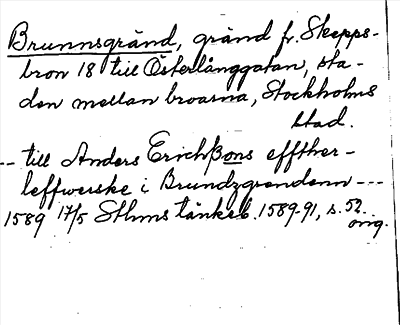 Brunnsgränd, gränd fr. Skepps-
bron 18 till Österlånggatan, sta-
den mellan broarna, Stockholms
stad.
-- till Anders Erichßons effther-
leffwerske i Brundzgrendenn ---
1589 17/5 Sthms tänkeb. 1589-91, s. 52
orig.